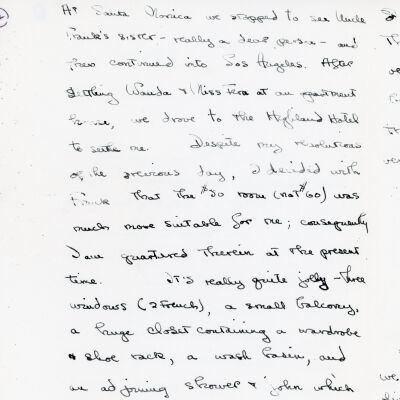 At Santa Monica we stopped to see Uncle
Frank's sister - really a dear person - and
then continued into Los Angeles. After
settling Wanda & Miss at an apartment
house, we drove to the Highland Hotel
to settle me. Despite my resolutions
of the previous day, I decided with
Frank that the $50 room (not $60) was
much more suitable for me; consequently
I am quartered therein at the present
time. It's really quite jolly - three
windows (2 French), a small balcony,
a huge closet containing a wardrobe
& shoe rack, a wash basin, and
an adjoining shower & john which